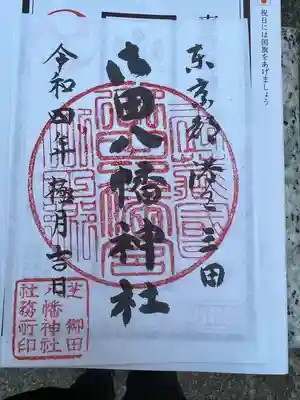 祝日には国旗をあげましょう
東京都港区三田
御田八幡神社
令和四年極月吉日
芝御田
八幡神社
社務所印